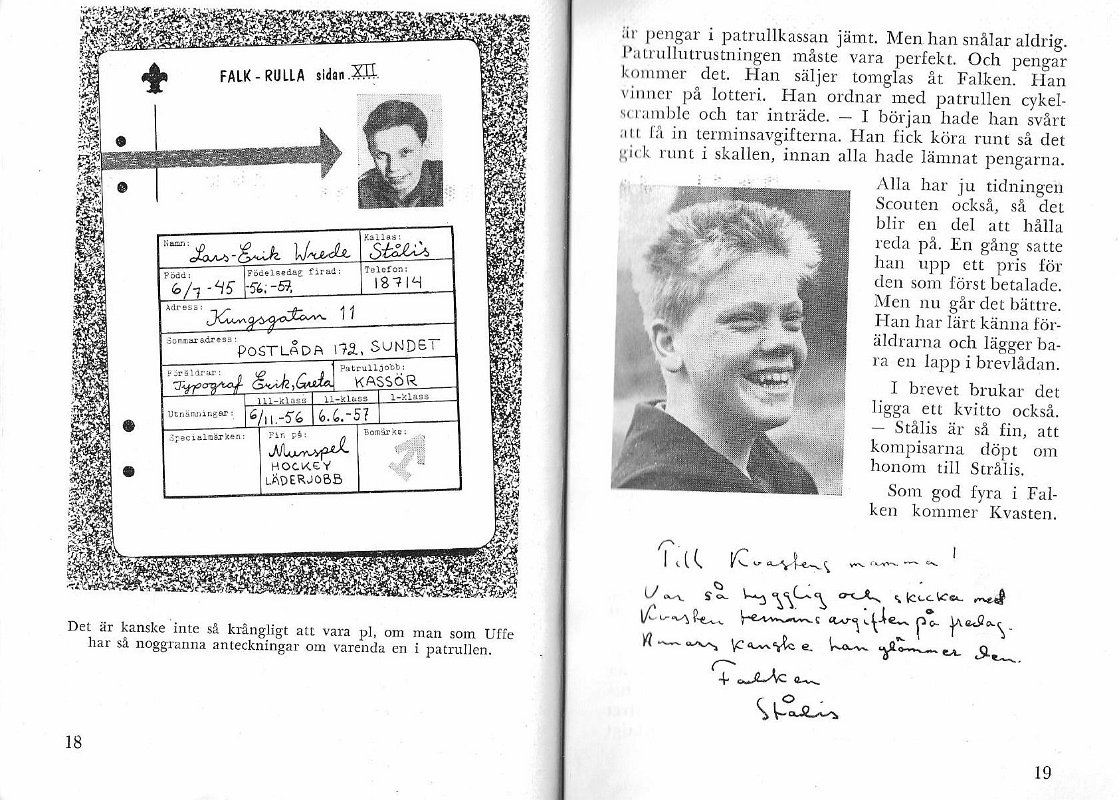 FALK - RULLA sidan XII
Namn: Lars-Erik Wrede
Kallas: Stålis
Född: 6/7 -45
Födelsedag firad: -56.-57.
Telefon: 18714
Adress: Kungsgatan 11
Sommaradress: POSTLÅDA 172, SUNDET
Föräldrar: Typograf Erik, Greta
Patrulljobb: KASSÖR
111-klass
11-klass
1-klass
Utnämningar: 6/11.-56
6.6.-57
Specialmärken:
Fin på:
Munspel
HOCKEY
LÄDERJOBB
Bomärke:
Det är kanske inte så krångligt att vara pl, om man som Uffe
har så noggranna anteckningar om varenda en i patrullen.
18
är pengar i patrullkassan jämt. Men han snålar aldrig.
Patrullutrustningen måste vara perfekt. Och pengar
kommer det. Han säljer tomglas åt Falken. Han
vinner på lotteri. Han ordnar med patrullen cykel-
scramble och tar inträde. — I början hade han svårt
att få in terminsavgifterna. Han fick köra runt så det
gick runt i skallen, innan alla hade lämnat pengarna.
Alla har ju tidningen
Scouten också, så det
blir en del att hålla
reda på. En gång satte
han upp ett pris för
den som först betalade.
Men nu går det bättre.
Han har lärt känna för-
äldrarna och lägger ba-
ra en lapp i brevlådan.
I brevet brukar det
ligga ett kvitto också.
— Stålis är så fin, att
kompisarna döpt om
honom till Strålis.
Som god fyra i Fal-
ken kommer Kvasten.
Till Kvastens mamma!
Var så hygglig och skicka med
Kvasten termins avgiften på fredag.
Annars kanske han glömmer den.
Falken
Stålis
19